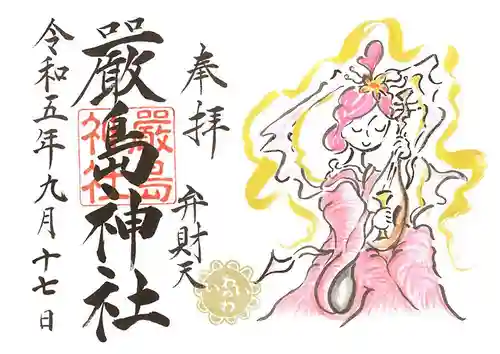 奉拝
弁財天
厳島神社
嚴島
神社
令和五年九月十七日